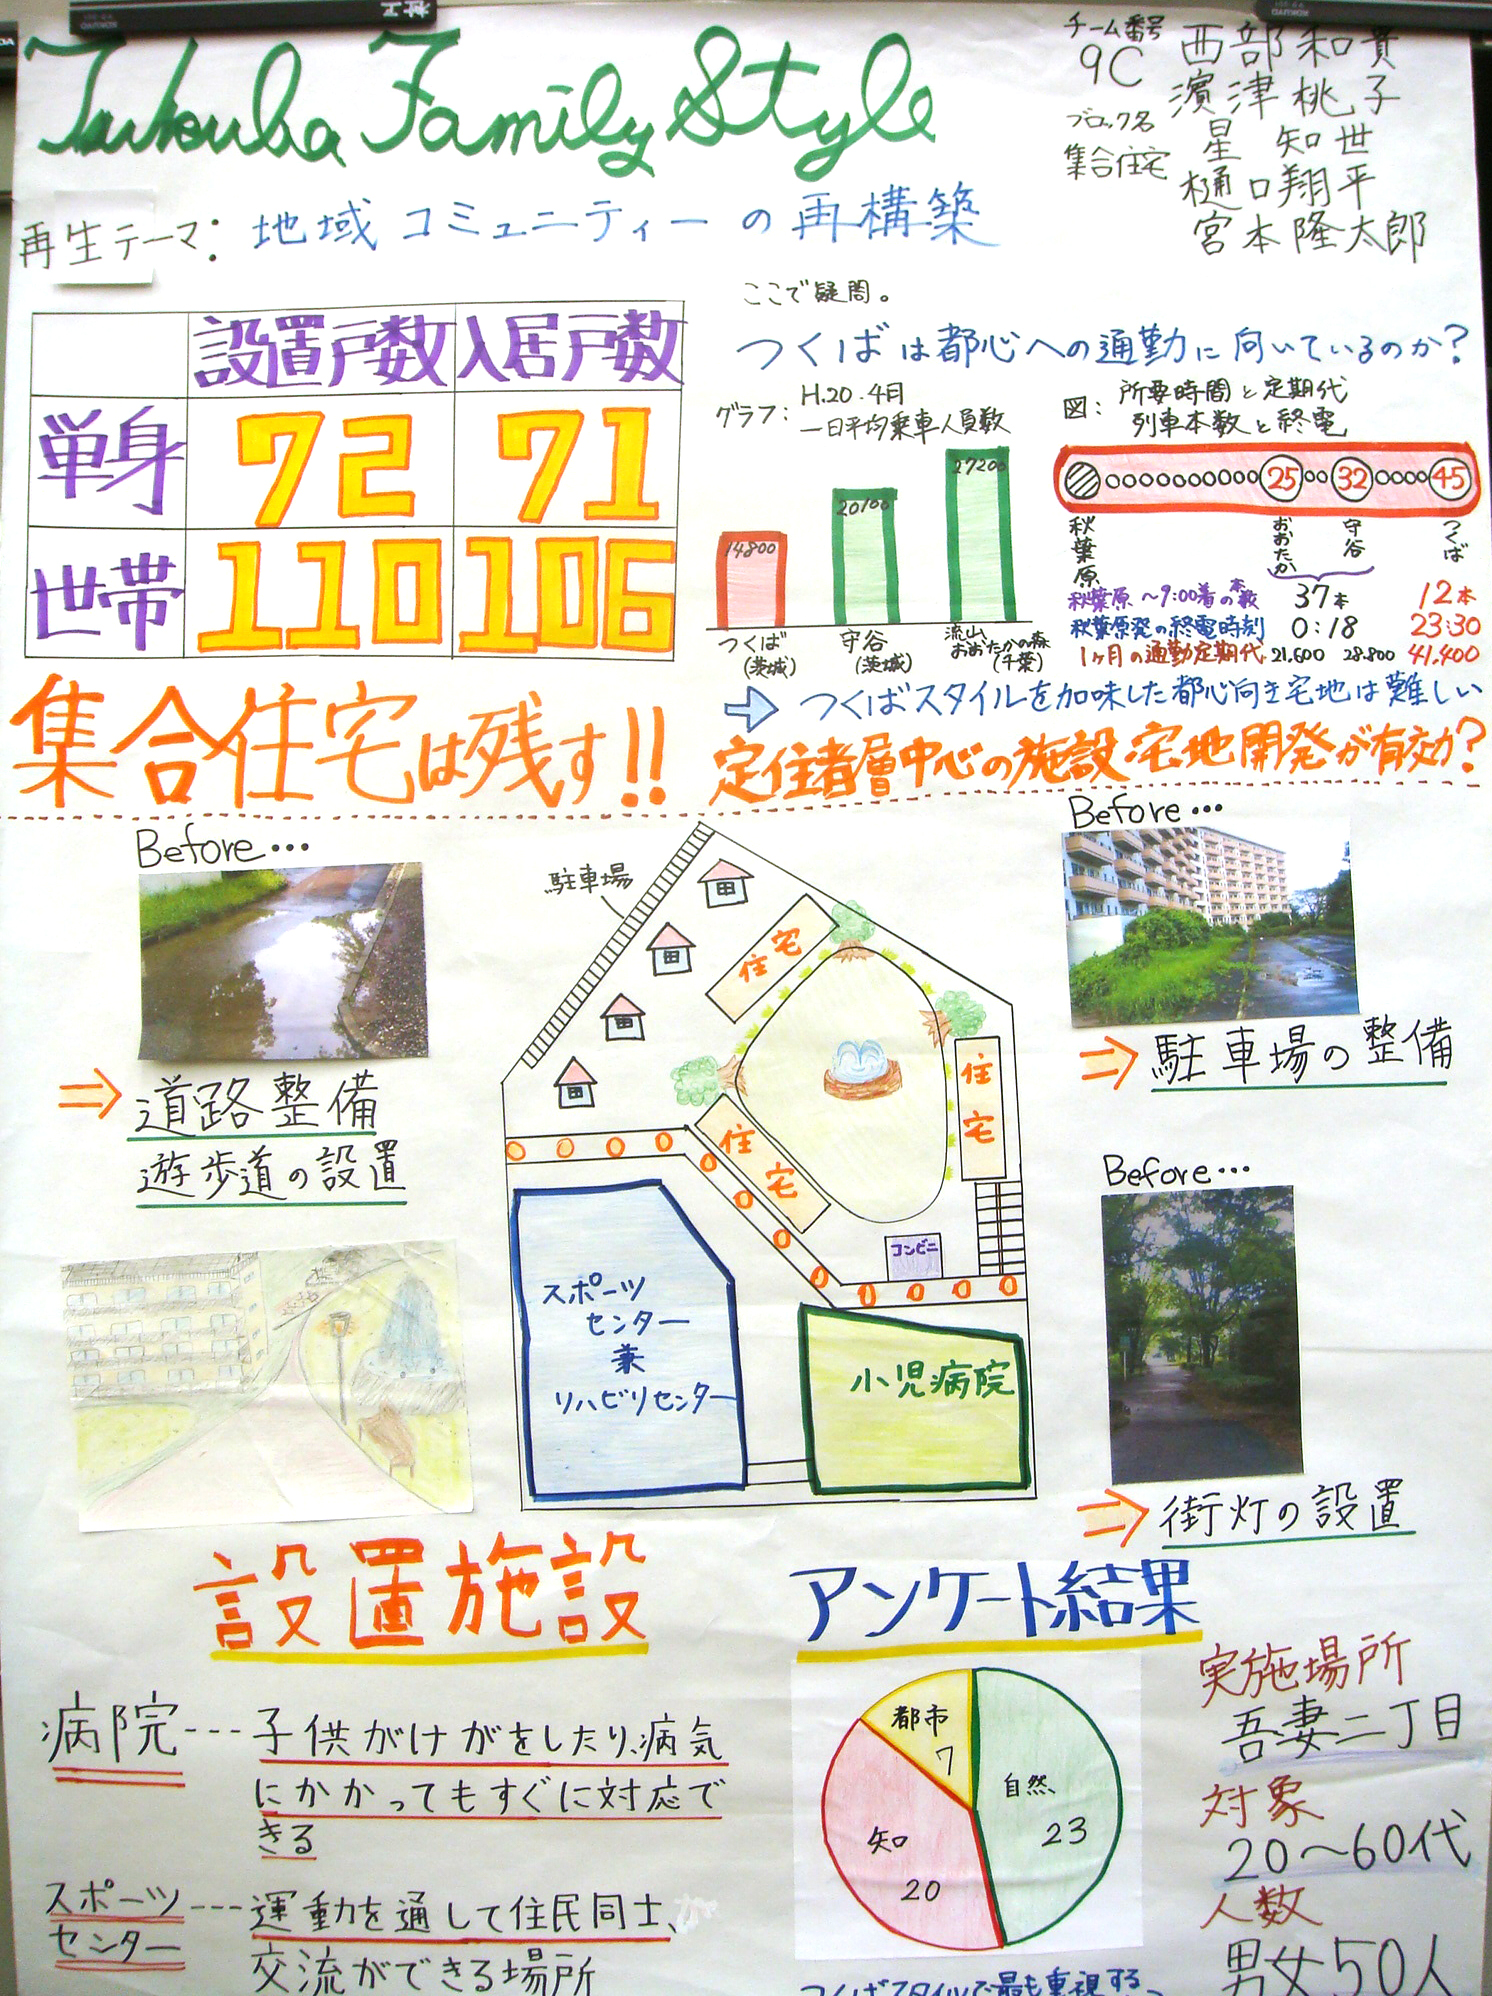 Tsukuba Family Style
チーム番号
9C
ブロック名
集合住宅
西部和貴
濱津桃子
星 知世
樋口翔平
宮本隆太郎
再生テーマ: 地域コミュニティーの再構築
設置戸数 入居戸数
単身 72 71
世帯 110 106
集合住宅は残す!!
ここで疑問。
つくばは都心への通勤に向いているのか?
グラフ: H.20.4月
一日平均乗車人員数
14800 20100 27200
つくば
(茨城)
守谷
(茨城)
流山
おおたかの森
(千葉)
図: 所要時間と定期代
列車本数と終電
25 32 45
秋葉原 おおたか 守谷 つくば
秋葉原〜9:00着の本数 37本 12本
秋葉原発の終電時刻 0:18 23:30
1ヶ月の通勤定期代 21,600 28,800 41,400
つくばスタイルを加味した都心向き宅地は難しい
定住者層中心の施設・宅地開発が有効か?
Before…
道路整備
遊歩道の設置
駐車場
住宅
住宅
住宅
コンビニ
スポーツ
センター
兼
リハビリセンター
小児病院
Before…
駐車場の整備
Before…
街灯の設置
設置施設
病院---子供がけがをしたり、病気
にかかってもすぐに対応で
きる
スポーツ
センター
---運動を通して住民同士、が
交流ができる場所
アンケート結果
都市
7
自然
23
知
20
実施場所
吾妻二丁目
対象
20〜60代
人数
男女50人
つくばスタイルで最も重視する